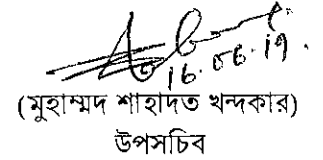 16.06.19.
(মুহাম্মদ শাহাদত খন্দকার)
উপসচিব